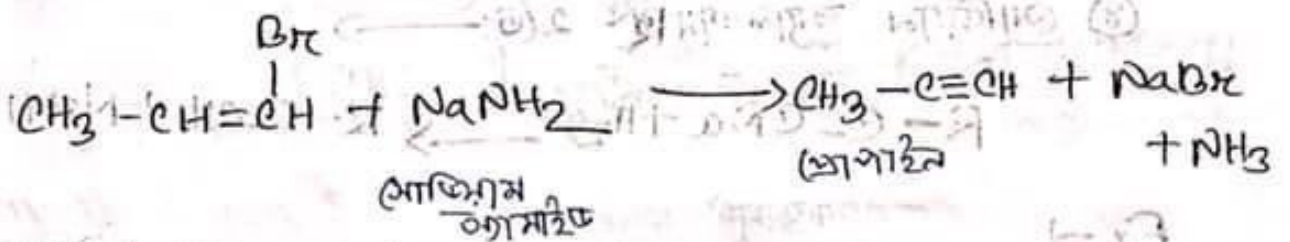 Br
|
CH3-CH=CH + NaNH2 ⟶ CH3-C≡CH + NaBr
+ NH3
সোডিয়াম
অ্যামাইড
প্রোপাইন